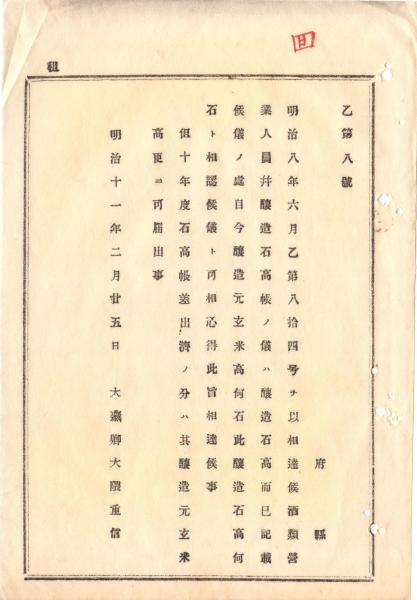 租
乙第八號
府縣
明治八年六月乙第八拾四号ヲ以相達候酒類營
業人員幷釀造石高帳ノ儀ハ釀造石高而已記載
候儀ノ處自今釀造元玄米高何石此釀造石高何
石ト相認候儀ト可相心得此旨相達候事
但十年度石高帳差出濟ノ分ハ其釀造元玄米
高更ニ可屆出事
明治十一年二月廿五日 大藏卿大隈重信